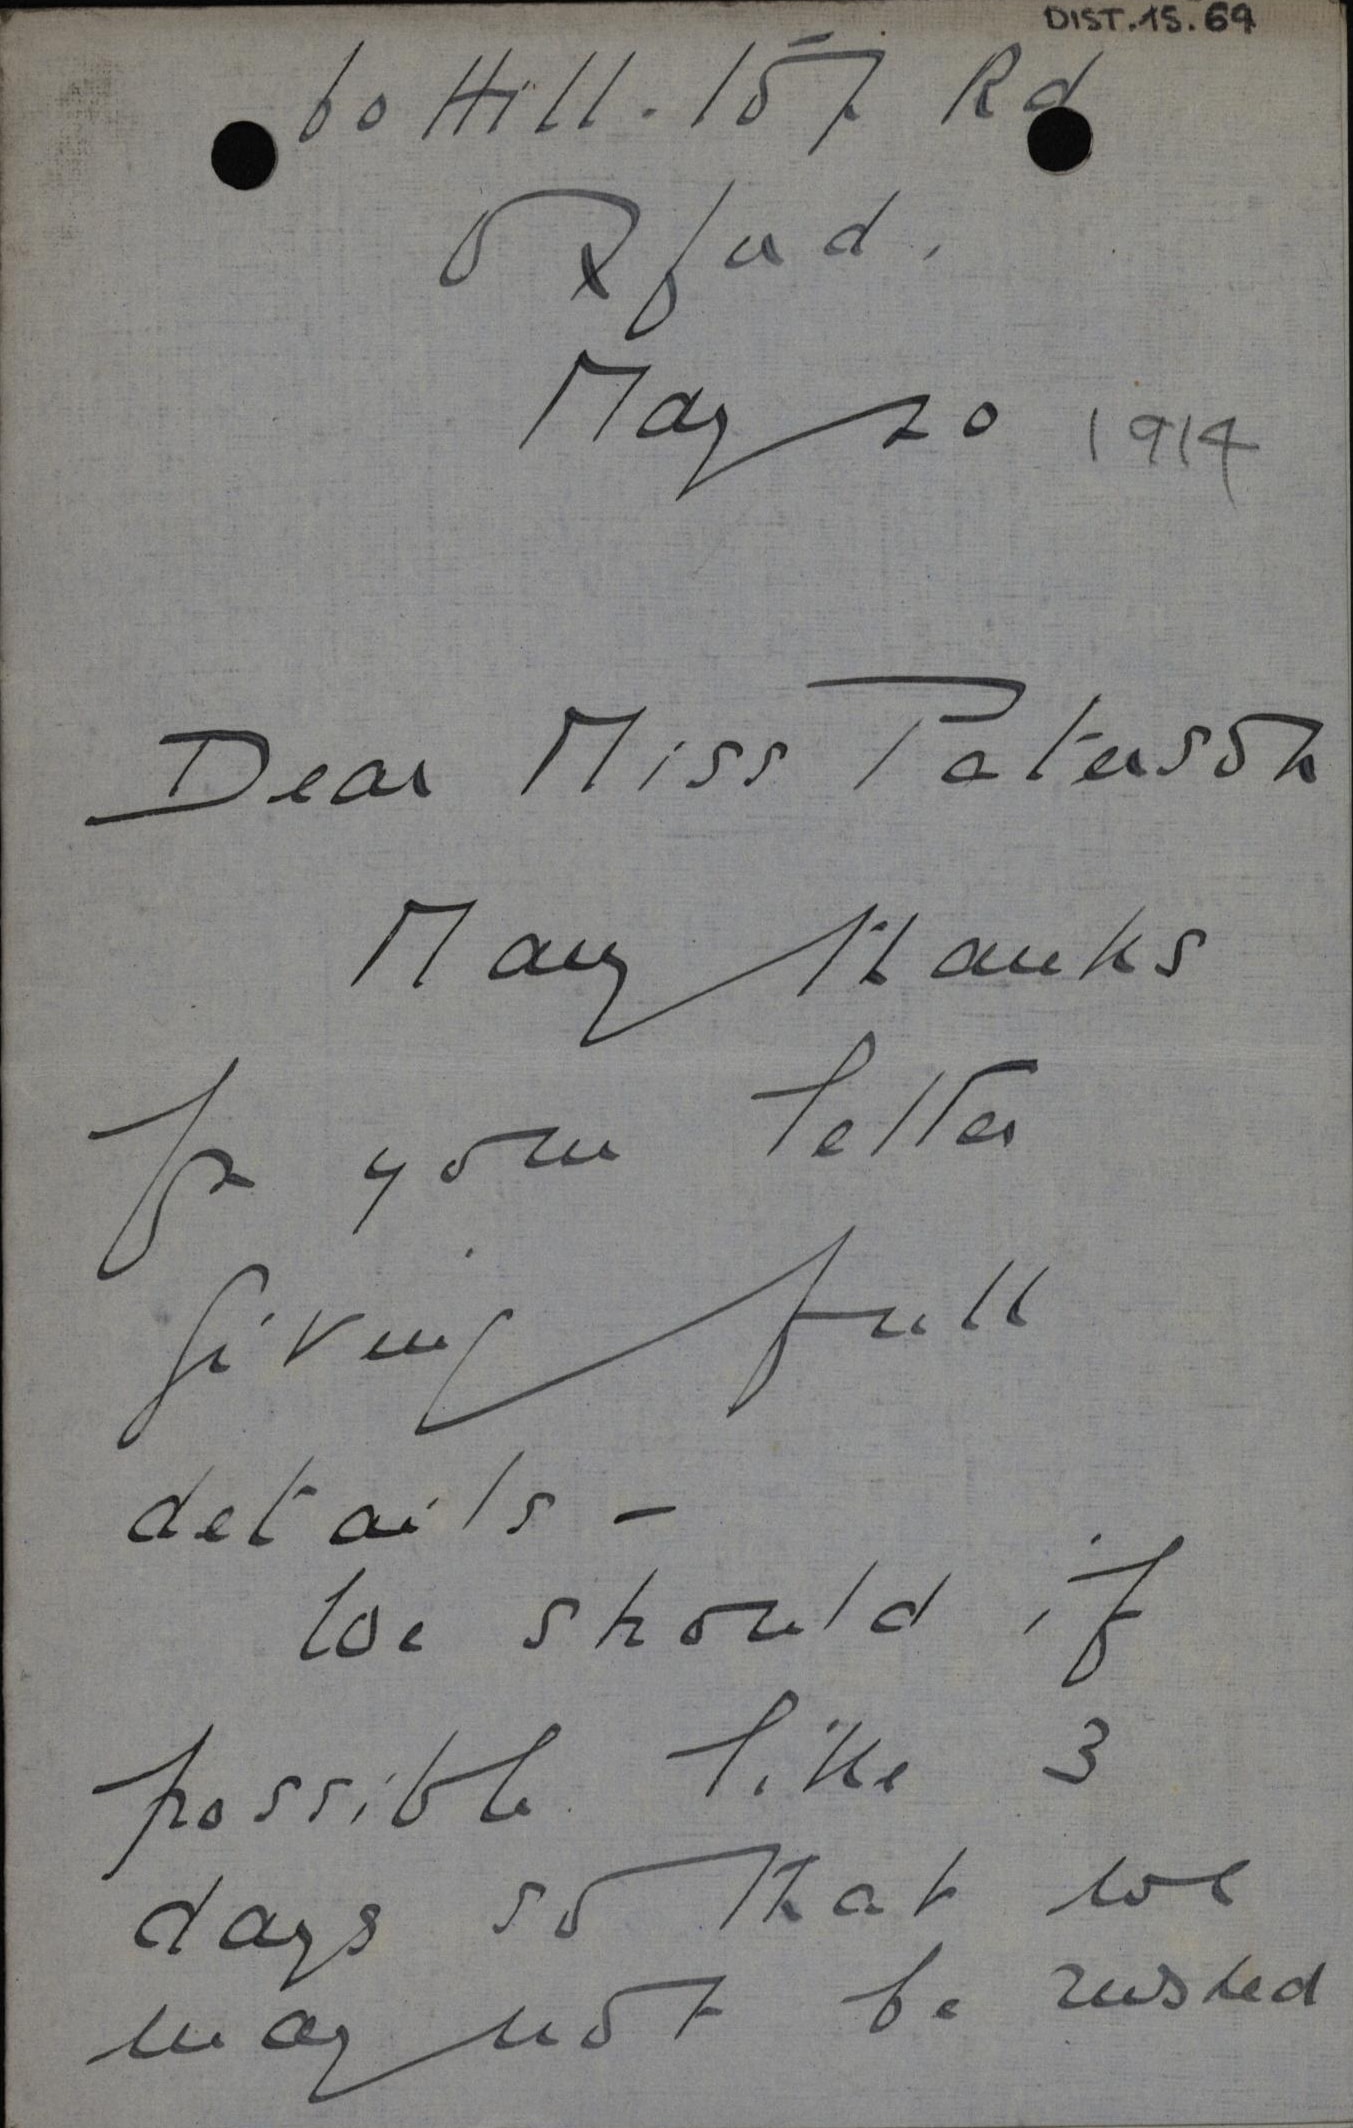 DIST.15.69
60 Hill-Top Rd
Oxford.
May 20 1914
Dear Miss Paterson
Many thanks
for your letter
giving full
details -
We should if
possible like 3
days so that we
may not be rushed